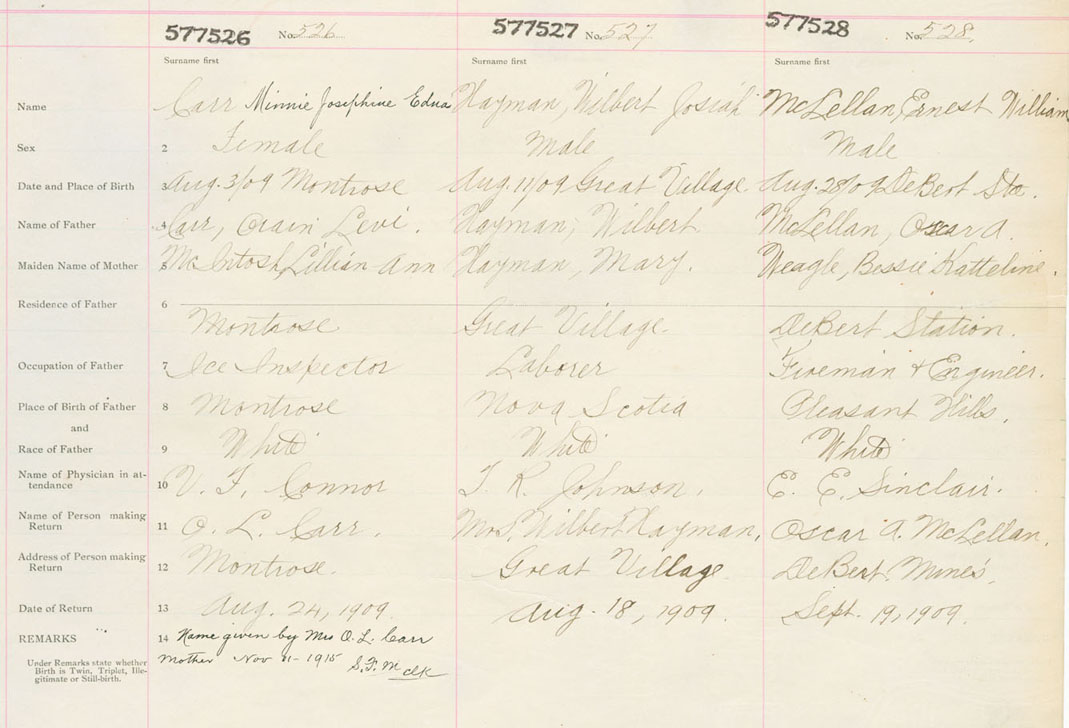 577526 No. 526 577527 No. 527 577528 No. 528.
Surname first Surname first Surname first
Name Carr Minnie Josephine Edna Hayman, Wilbert Josiah McLellan, Ernest William
Sex 2 Female Male Male
Date and Place of Birth 3 Aug. 3/09 Montrose Aug. 11/09 Great Village. Aug. 28/09 DeBert Sta.
Name of Father 4 Carr, Orain Levi. Hayman, Wilbert McLellan, Oscar A.
Maiden Name of Mother 5 McIntosh, Lillian Ann Hayman, Mary. Weagle, Bessie Katteline.
Residence of Father 6
Montrose Great Village. DeBert Station.
Occupation of Father 7 Ice Inspector Laborer Fireman + Engineer.
Place of Birth of Father 8 Montrose Nova Scotia Pleasant Hills.
and
Race of Father 9 White White White
Name of Physician in at-
tendance 10 V. F. Connor T. R. Johnson. E. E. Sinclair.
Name of Person making
Return 11 O. L. Carr. Mrs. Wilbert Hayman. Oscar A. McLellan.
Address of Person making
Return 12 Montrose. Great Village. DeBert Mines.
Date of Return 13 Aug. 24, 1909. Aug. 18, 1909. Sept. 19, 1909.
REMARKS 14 Name given by Mrs O. L. Carr
Mother Nov 11 - 1915 S.F.M clk
Under Remarks state whether
Birth is Twin, Triplet, Ille-
gitimate or Still-birth.